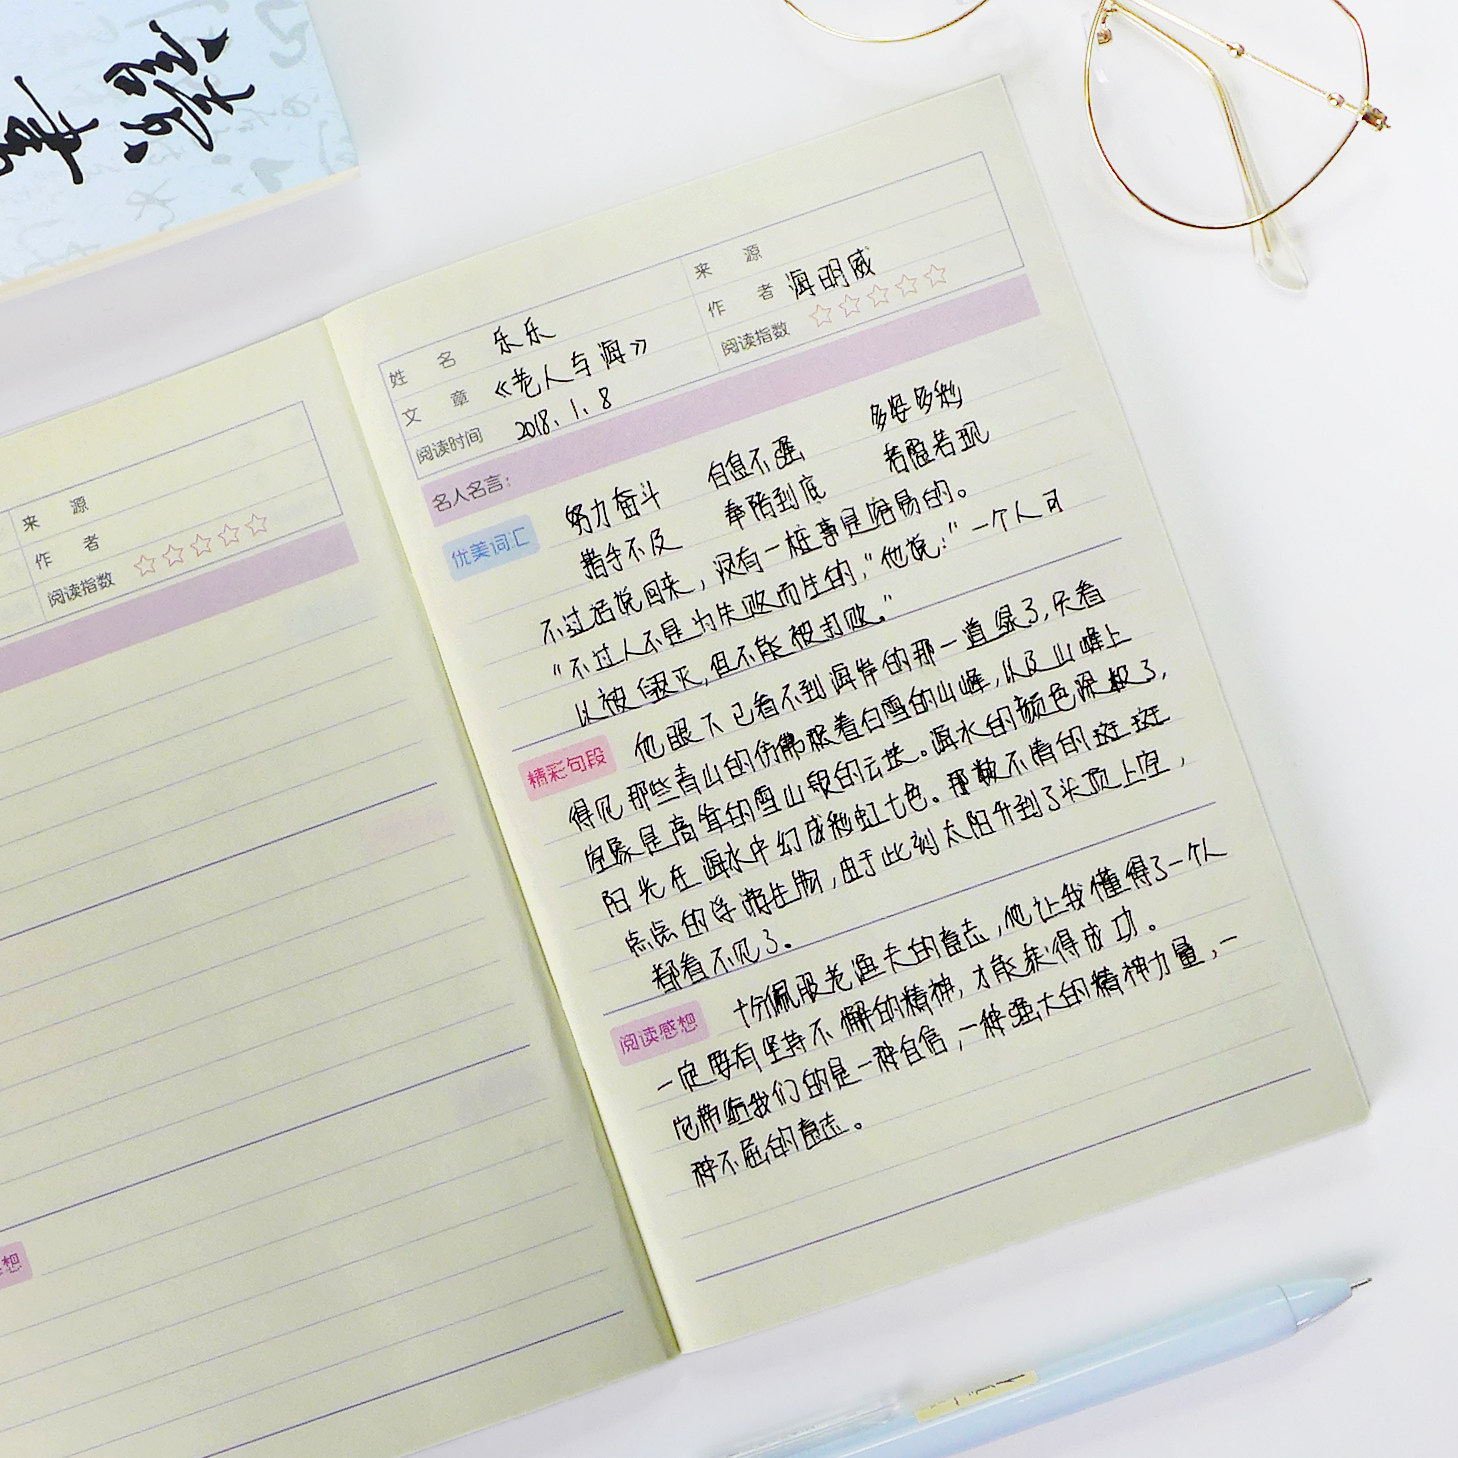 讀書
来源
作者
阅读指数
想
姓名 乐乐
来源
文章 《老人与海》
作者 海明威
阅读时间 2018.1.8
阅读指数
名人名言:
优美词汇
努力奋斗 自息不强 多姿多彩
措手不及 奉陪到底 若隐若现
不过话说回来，没有一桩事是容易的。
"不过人不是为失败而生的，"他说："一个人可
以被毁灭，但不能被打败。"
精彩句段
他眼下已看不到海岸的那一道绿了，只看
得见那些青山的仿佛积着白雪的山峰，以及山峰上
空象是高耸的雪山般的云块。海水的颜色深极了，
阳光在海水中幻成彩虹七色。那数不清的斑斑
点点的浮游生物，由于此刻太阳升到了头顶上空，
都看不见了。
阅读感想
十分佩服老渔夫的意志，他让我懂得了一个人
一定要有坚持不懈的精神，才能获得成功。
它带给我们的是一种自信，一种强大的精神力量，一
种不屈的意志。